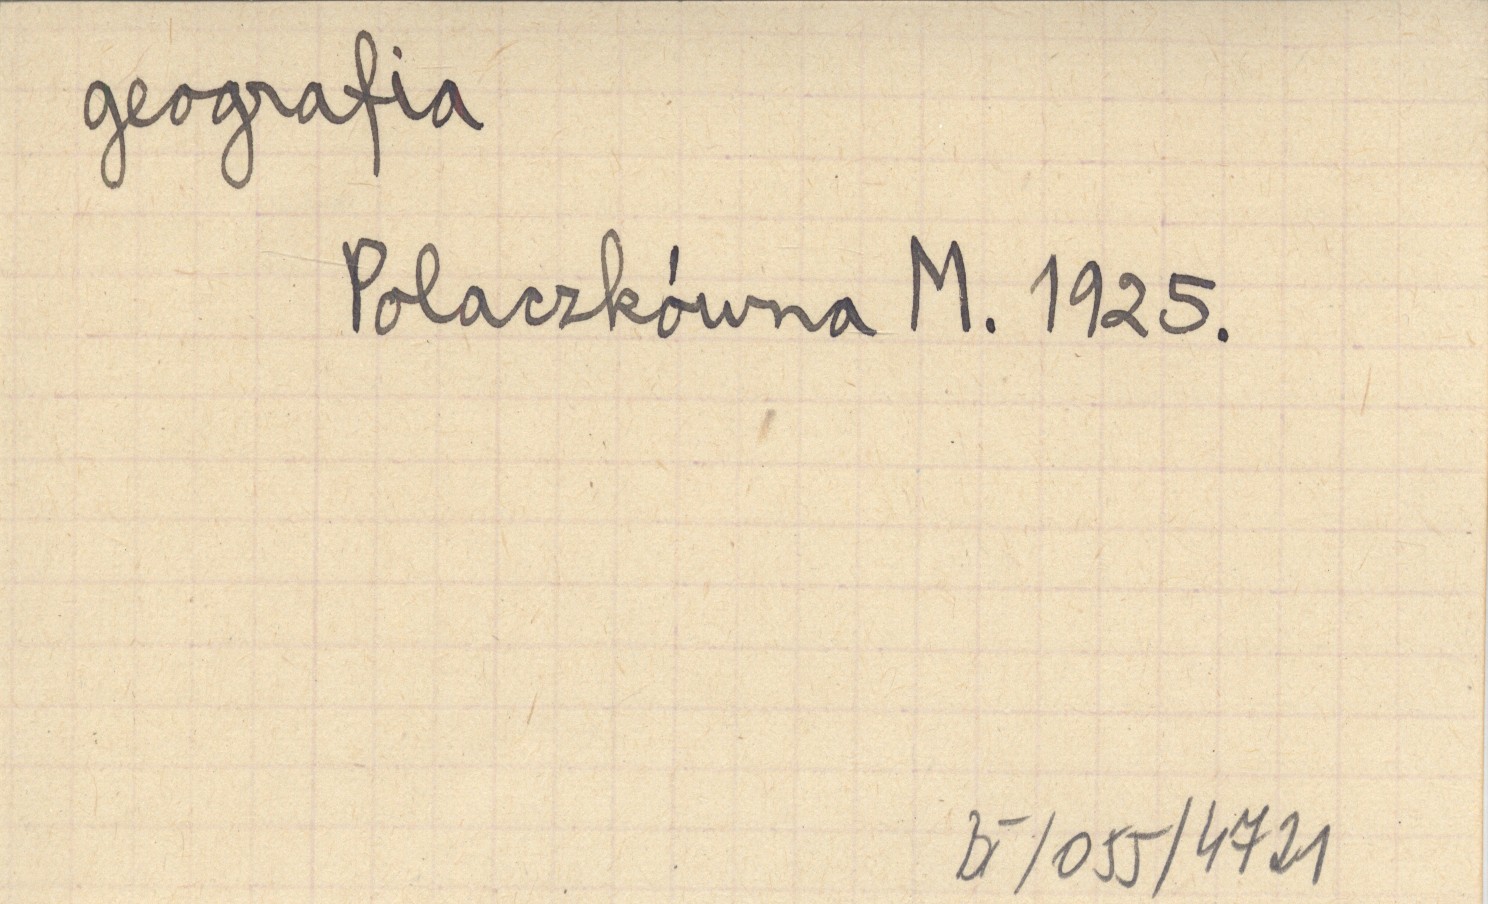 geografia
Polaczkówna M. 1925.
/055/4721